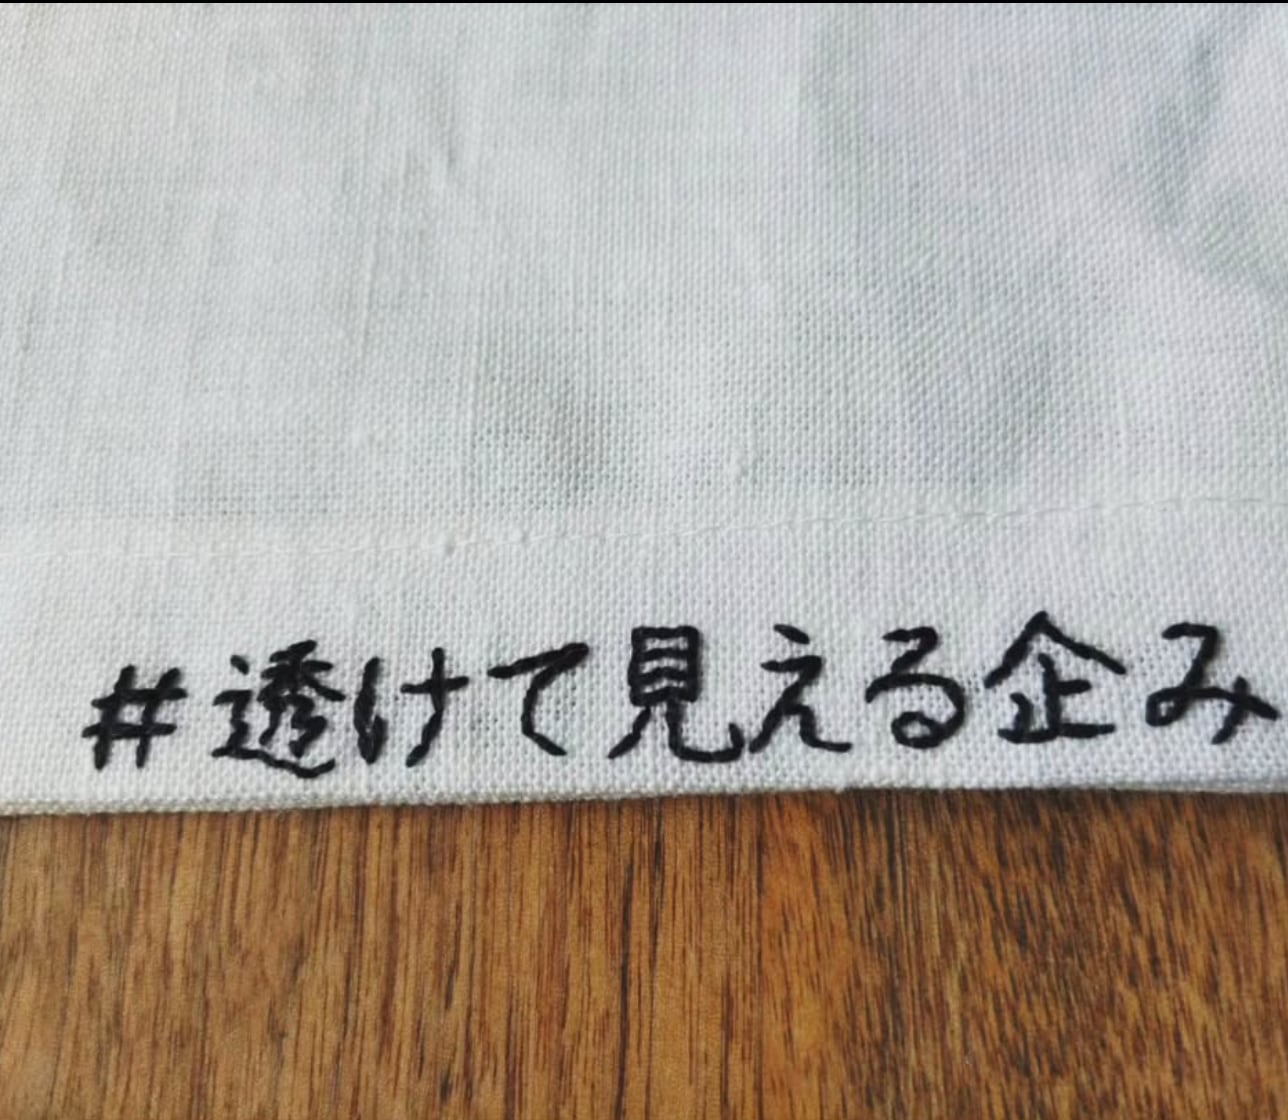 #透けて見える企み